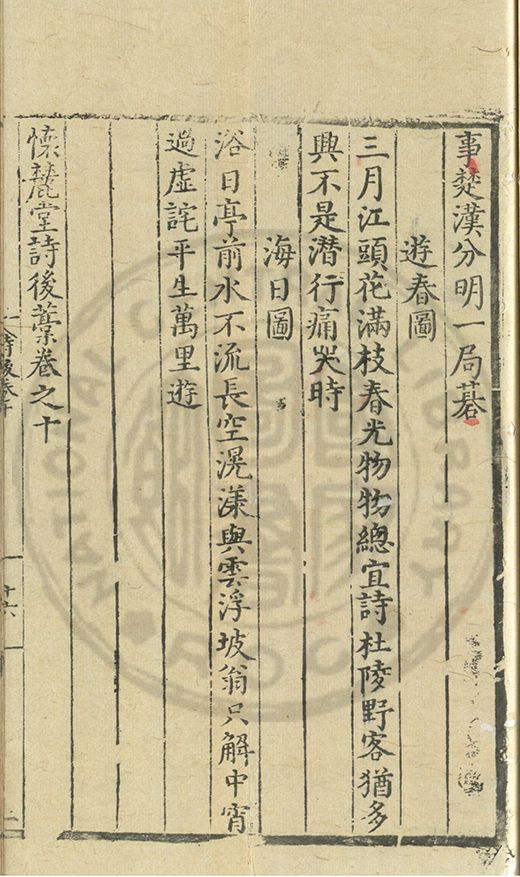 事楚漢分明一局棊
遊春圖
三月江頭花滿枝春光物物總宜詩杜陵野客猶多
興不是潛行痛哭時
海日圖
浴日亭前水不流長空滉漾與雲浮坡翁只解中宵
過虛詫平生萬里遊
懷麓堂詩後藁卷之十
十六